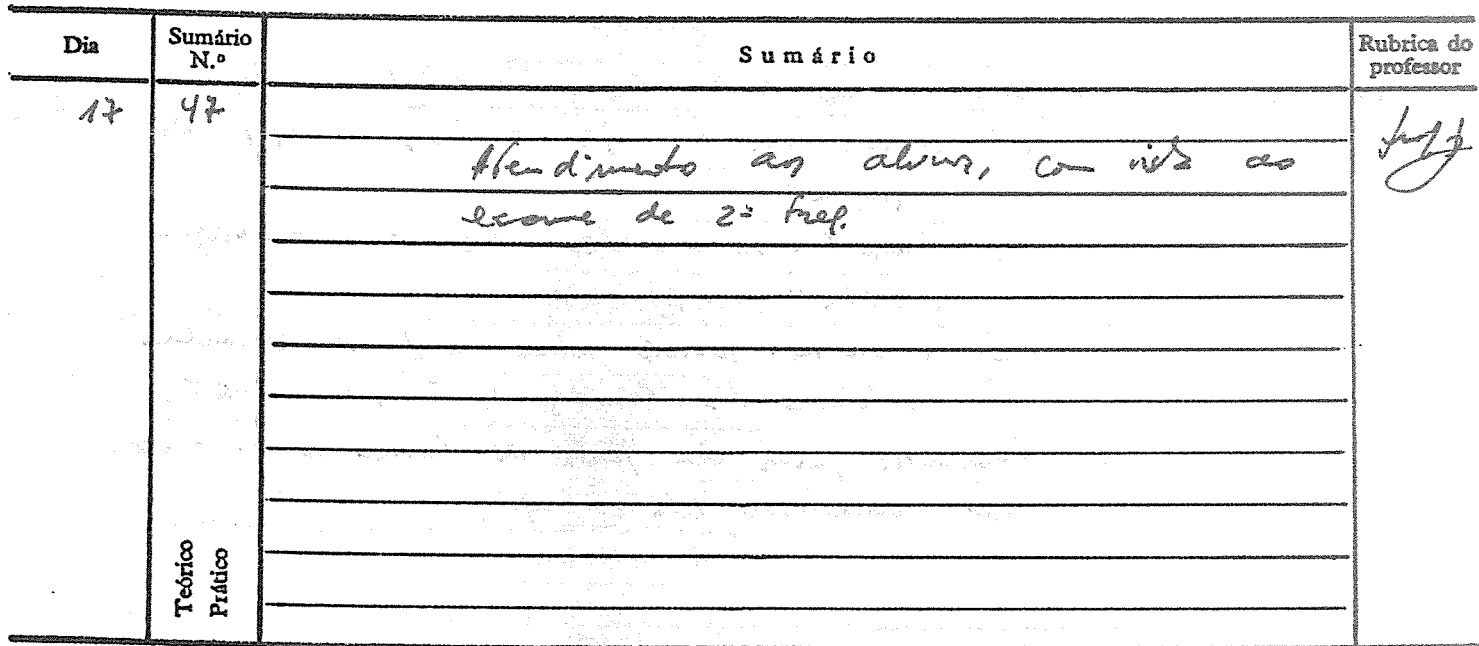 Dia
Sumário
N.º
Sumário
Rubrica do
professor
17
47
Atendimento aos alunos, com vista ao
exame de 2ª freq.
Teórico
Prático